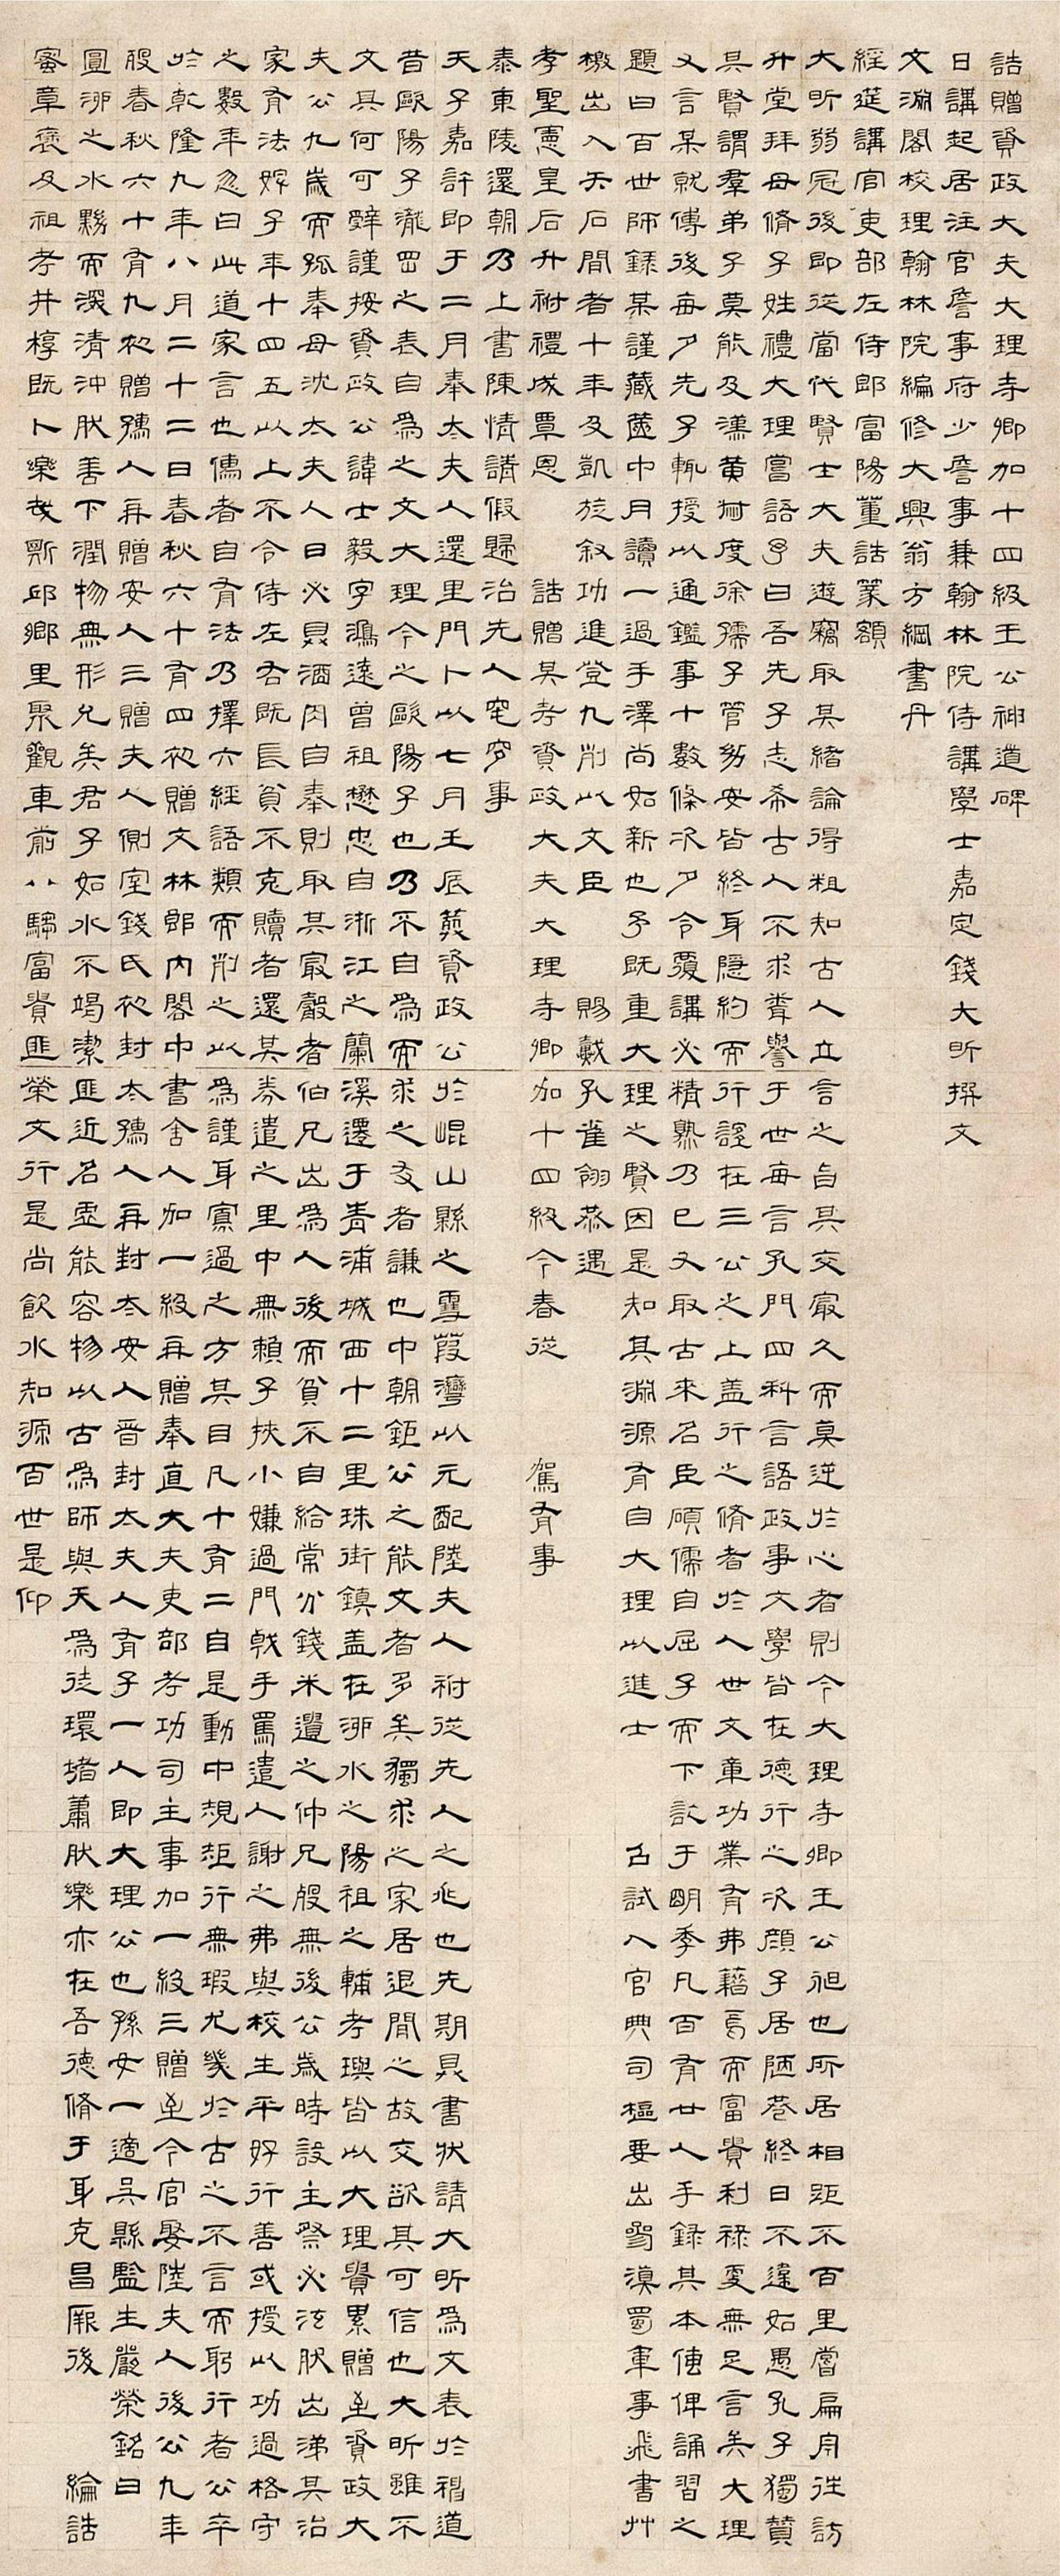 誥贈資政大夫大理寺卿加十四級王公神道碑
日講起居注官詹事府少詹事兼翰林院侍講學士嘉定錢大昕撰文
文淵閣校理翰林院編修大興翁方綱書丹
經筵講官吏部左侍郎富陽董誥篆額
大昕弱冠後即從當代賢士大夫遊竊取其緒論得粗知古人立言之旨其交最久而莫逆於心者則今大理寺卿王公昶也所居相距不百里嘗扁舟往訪
升堂拜母脩子姓禮大理嘗語予曰吾先子志希古人不求聲譽于世每言孔門四科言語政事文學皆在德行之次顏子居陋巷終日不違如愚孔子獨贊
其賢謂羣弟子莫能及漢黃叔度徐孺子管幼安皆終身隱約而行誼在三公之上蓋行之脩者於人世文章功業有弗藉焉而富貴利祿更無足言矣大理
又言某就傅後每夕先子輒授以通鑑事十數條次夕令覆講必精熟乃已又取古來名臣碩儒自屈子而下訖于明季凡百有廿人手錄其本傳俾誦習之
題曰百世師錄某謹藏篋中月讀一過手澤尚如新也予既重大理之賢因是知其淵源有自大理以進士 召試入官典司樞要出滇蜀軍事飛書艸
檄出入矢石間者十年及凱旋敘功進登九列以文臣 賜戴孔雀翎恭遇
孝聖憲皇后升祔禮成覃恩 誥贈某考資政大夫大理寺卿加十四級今春從 駕有事
泰東陵還朝乃上書陳情請假歸治先人窀穸事
天子嘉許即于二月奉太夫人還里門卜以七月壬辰葬資政公於崐山縣之雪葭灣以元配陸夫人祔從先人之兆也先期具書狀請大昕為文表於神道
昔歐陽子瀧岡之表自為之文大理今之歐陽子也乃不自為而求之友者謙也中朝鉅公之能文者多矣獨求之家居退閒之故交欲其可信也大昕雖不
文其何可辭謹按資政公諱士毅字鴻遠曾祖懋忠自浙江之蘭溪遷于青浦城西十二里珠街鎮蓋在泖水之陽祖之輔考璵皆以大理貴累贈至資政大
夫公九歲而孤奉母沈太夫人日必具酒肉自奉則取其最觳者伯兄出為人後而貧不自給常分錢米遺之仲兄殷無後公歲時設主祭必泫然出涕其治
家有法婢子年十四五以上不令侍左右既長貧不克贖者還其券遣之里中無賴子挾小嫌過門戟手罵遣人謝之弗與校生平好行善或授以功過格守
之數年忽曰此道家言也儒者自有法乃擇六經語類而列之以為謹身寡過之方其目凡十有二自是動中規矩行無瑕尤幾於古之不言而躬行者公卒
於乾隆九年八月二十二日春秋六十有四初贈文林郎內閣中書舍人加一級再贈奉直大夫吏部考功司主事加一級三贈至今官娶陸夫人後公九年
歿春秋六十有九初贈孺人再贈安人三贈夫人側室錢氏初封太孺人再封太安人晉封太夫人有子一人即大理公也孫女一適吳縣監生嚴榮銘曰
圓泖之水黝而深清沖然善下潤物無形允矣君子如水不竭潔匪近名虛能容物以古為師與天為徒環堵蕭然樂亦在吾德脩于身克昌厥後 綸誥
蜜章褒及祖考井椁既卜樂哉斯邱鄉里聚觀車前八騶富貴匪榮文行是尚飲水知源百世是仰